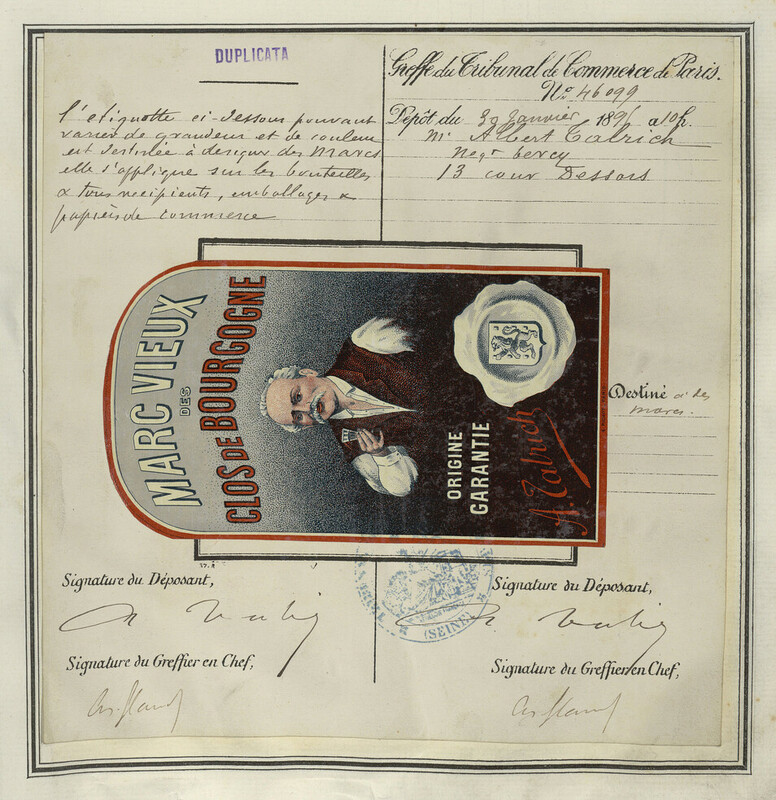 DUPLICATA
l'etiquette ci-dessous pouvant
varier de grandeur et de couleur
est destinée à designer des Marcs
elle s'applique sur les bouteilles
& tous recipients, emballages &
papiers de commerce
Greffe du Tribunal de Commerce de Paris.
No. 46099
Dépôt du Janvier 189 a 10h.
Mr Albert Talrich
Negt Bercy
13 cour Dessors
MARC VIEUX
DES
CLOS DE BOURGOGNE
ORIGINE
GARANTIE
A. Talrich
Destiné à des
marcs.
Signature du Déposant,
Signature du Greffier en Chef,
(SEINE)
Signature du Déposant,
Signature du Greffier en Chef,